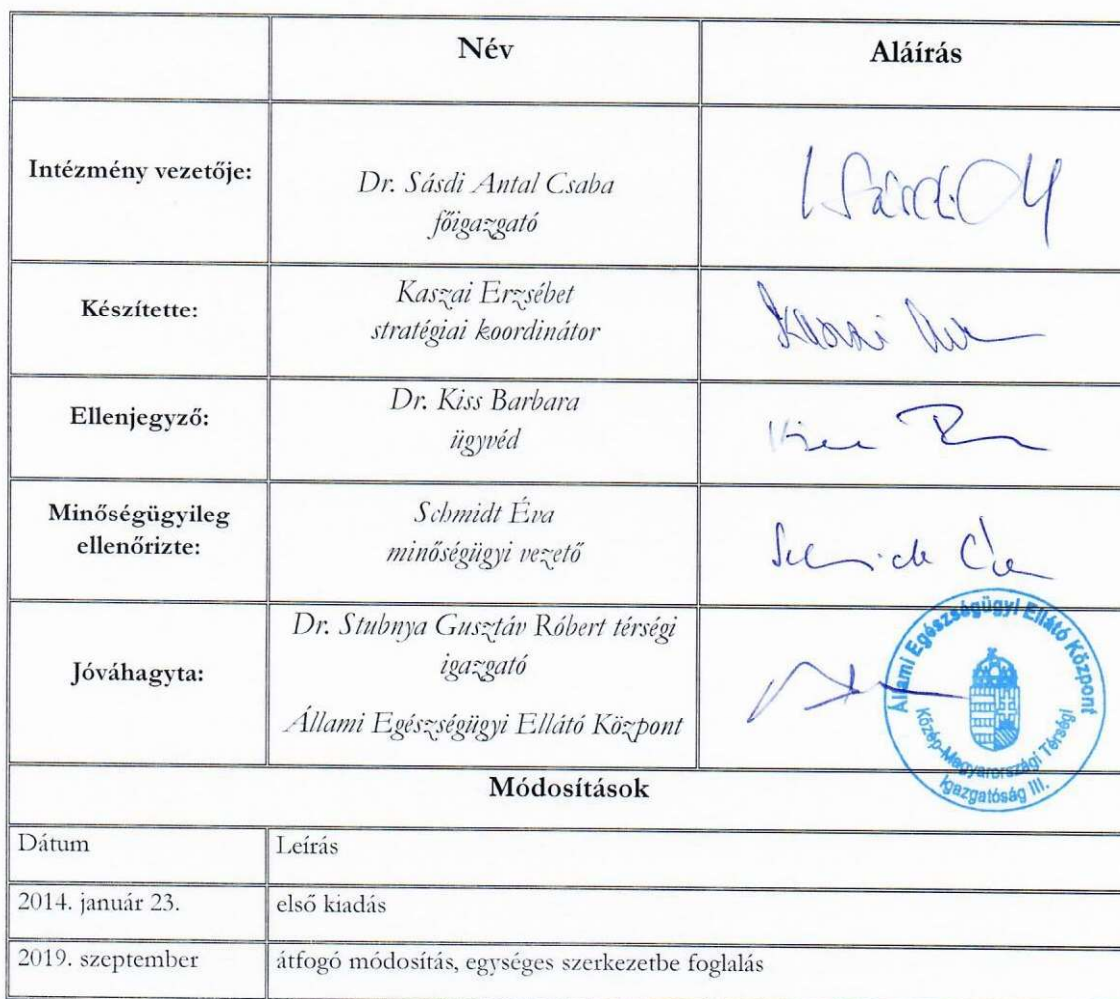 Név
Aláírás
Intézmény vezetője:
Dr. Sásdi Antal Csaba
főigazgató
Készítette:
Kaszai Erzsébet
stratégiai koordinátor
Ellenjegyző:
Dr. Kiss Barbara
ügyvéd
Minőségügyileg
ellenőrizte:
Schmidt Éva
minőségügyi vezető
Jóváhagyta:
Dr. Stubnya Gusztáv Róbert térségi
igazgató
Állami Egészségügyi Ellátó Központ
Állami Egészségügyi Ellátó Központ
Közép-Magyarországi Térségi
Igazgatóság III.
Módosítások
Dátum
Leírás
2014. január 23.
első kiadás
2019. szeptember
átfogó módosítás, egységes szerkezetbe foglalás